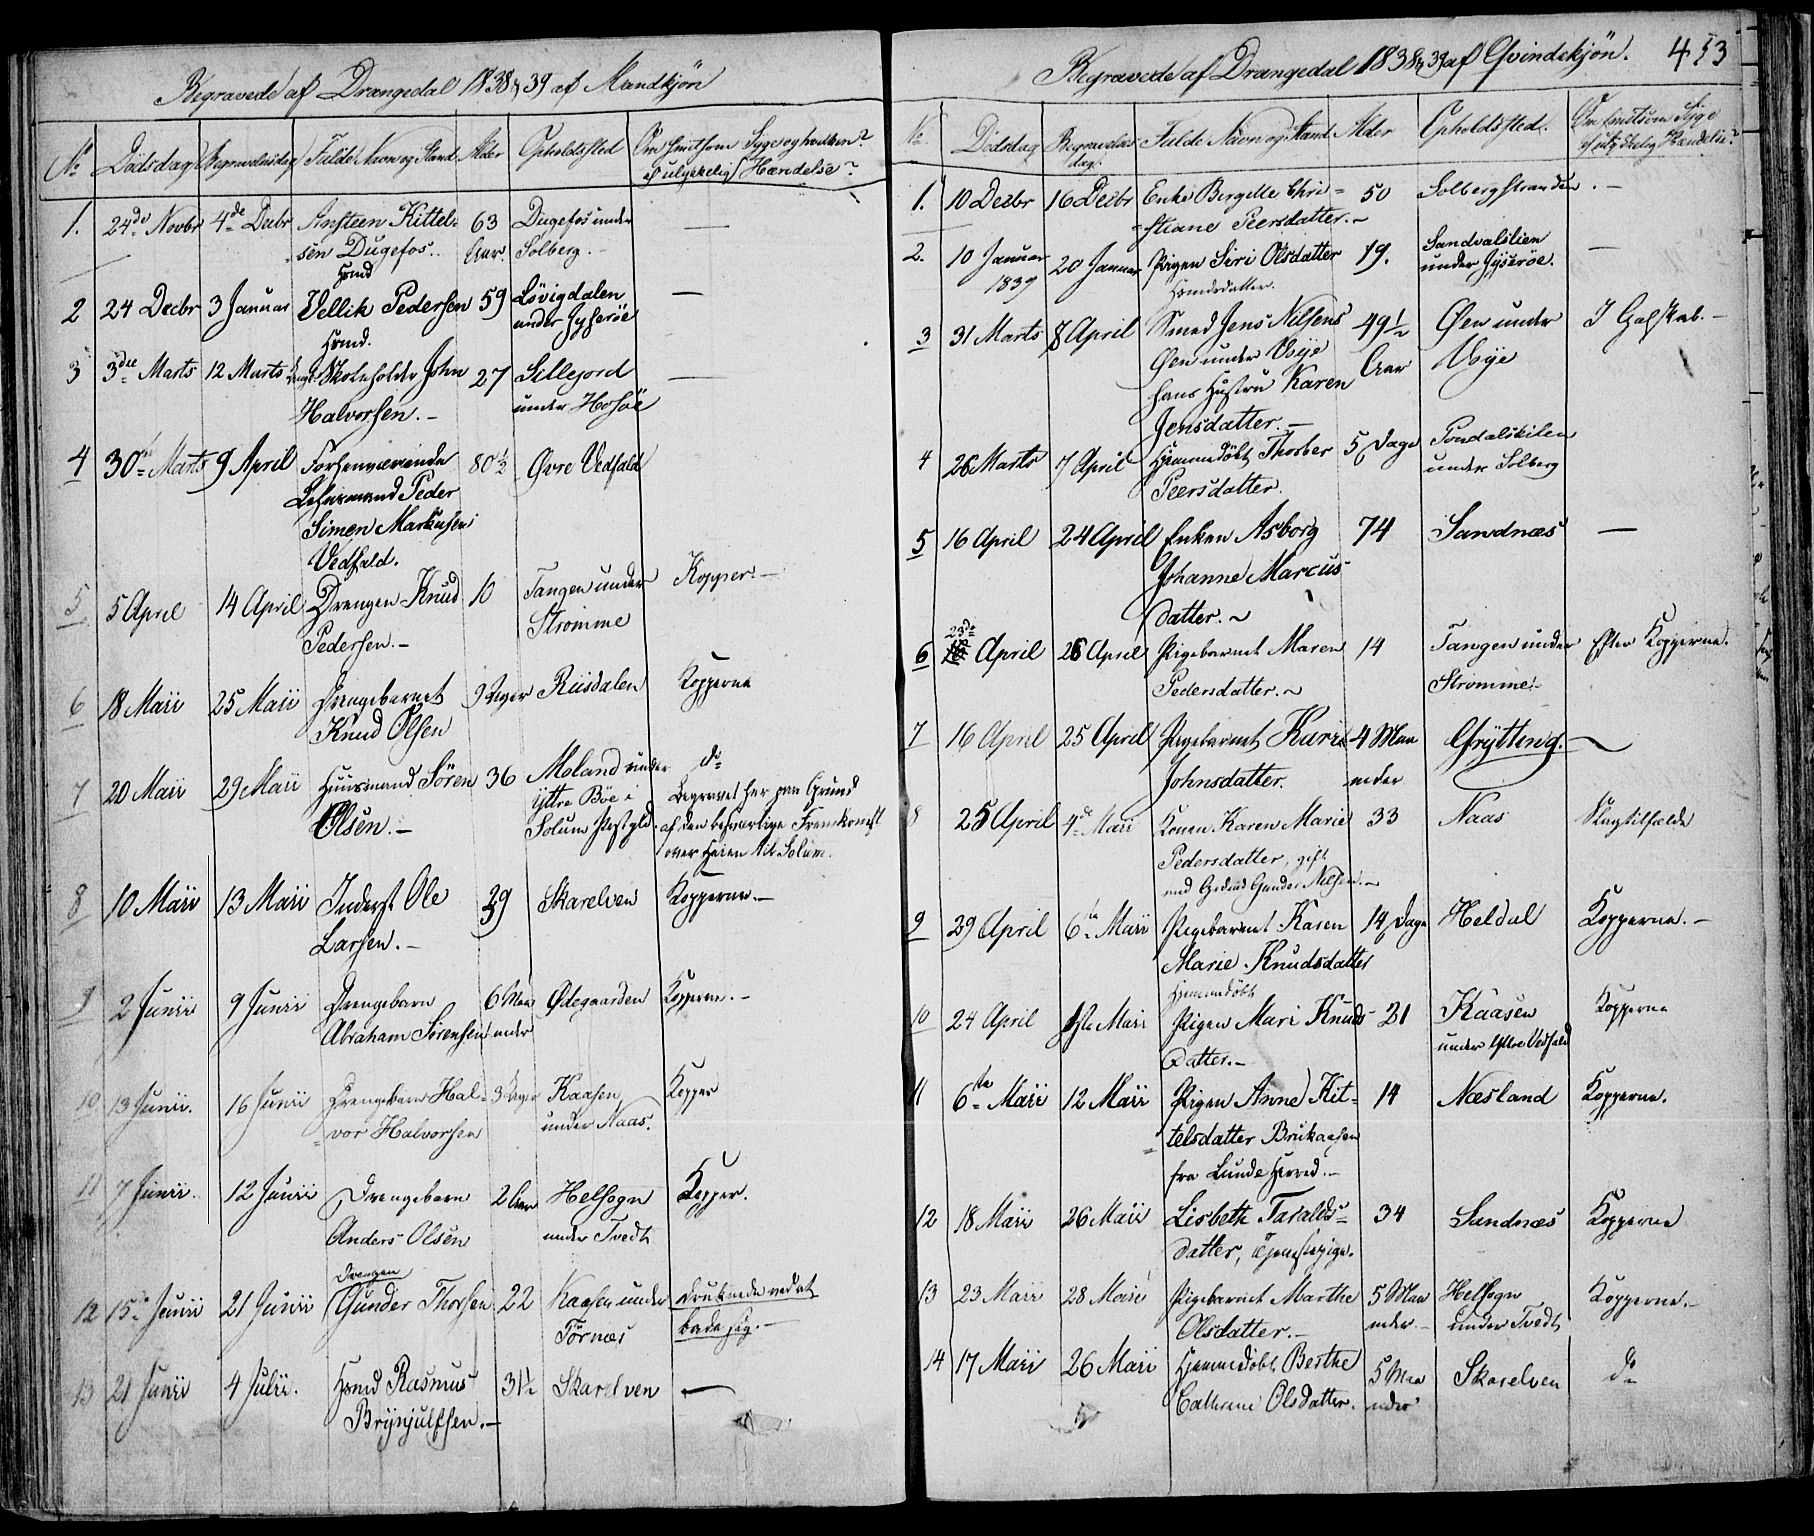 Begravede af Drangedal 1838 & 39 af Mandkjøn
No Dødsdag Begravelsesdag Fulde Navn og Stand Alder Opholdssted Om smitsom Syge og hvilken?
ell ulykkelig Hændelse?
1. 24de Novbr 4de Decbr Ansteen Kittel- 63 Dugefos under —
sen Dugefos. Aar. Solberg.
Hsmd
2 24 Decbr 3 Januar Vellik Pedersen 59 Lövigdalen —
Hsmd. under
3 3die Marts 12 Marts Skoleholder John 27 Sillejord —
Halvorsen. under
4 30te Marts 9 April Forhenværende 80½ Øvre Vedfald
Lehnsmand Peder
Simen Markusen
Vedfald.
5 5 April 14 April Drengen Knud 10 Tangen under Kopper.
Pedersen. Strømme
6 18 Maii 25 Maii Drengebarnet 9 Uger Riisdalen Kopperne
Knud Olsen
7 20 Maii 29 Maii Huusmand Sören 36 Moland under do
Olsen. Yttre Böe i Begravet her paa Grund
Solum Prstgld. af den besværlige Fremkomst
over Heien til Solum.
8 10 Maii 13 Maii Inderst Ole 29 Skarelven Kopperne.
Larsen.
9 2 Junii 9 Junii Drengebarn 6 Maa Ødegaarden Kopperne.
Abraham Sörensen neder
10 13 Junii. 16 Junii Drengebarn Hal- 3 Uger Kaasen Kopper
vor Halvorsen under Naas.
11 7 Junii. 12 Junii Drengebarn 2 Aar Helsogn Kopper.
Anders Olsen under Tvedt
Drengen
12 15de Junii 21 Junii Gunder Thorsen 22 Kaasen under druknede ved at
Törnæs bade sig.
13 21 Junii 4 Julii. Hsmd Rasmus 31½ Skarelven —
Brynjulfsen.
Begravede af Drangedal 1838 & 39 af Qvindekjön. 453
No. Dödsdag Begravelses Fulde Navn og Stand Alder Opholdssted. Om smitsom Syge
dag. ell ulykkelig Hændelse?
1. 10 Decbr 16 Decbr Enke Bergitte Chri- 50 Solbergstranden —
stiane Peersdatter.
2. 10 Januar 20 Januar Pigen Siri Olsdatter 19. Sandvaslien —
1839 Hsmdsdatter. under
3 31 Marts 8 April Smed Jens Nilsens 49½ Øen under I Galskab.
Øen under Voje Aar Voje
hans Hustru Karen
Jensdatter.
4 26 Marts 7 April Hjemmedöbt Thorber 5 Dage
Peersdatter. under Solberg
5 16 April 24 April Enken Asborg 74 Sandnæs —
Johanne Marcus
datter.
23de
6 April 26 April Pigebarnet Maren 14 Tangen under Efter Kopperne.
Pedersdatter. Strömme.
7 16 April 25 April Pigebarnet Kari 4 Maa Gfrytting.
Johnsdatter. neder
8 25 April 4de Maii Konen Karen Marie 33 Naas Slagtilfælde
Pedersdatter, gift
med Gunder Nilsen.
9 29 April 6te Maii Pigebarnet Karen 14 Dage Heldal Kopperne.
Marie Knudsdatter
Hjemmedöbt
10 24 April Maii Pigen Mari Knuds 21 Kaasen Kopperne
datter. under Yttre Vedfald
11 6te Maii 12 Maii Pigen Anne Kit- 14 Næsland Kopperne.
telsdatter Brukaasen
fra Lunde Herred.
12 18 Maii 26 Maii Lisbeth Taralds- 34 Sandnæs Kopperne
datter, Tjenestepige.
13 23 Maii 28 Maii Pigebarnet Marthe 5 Maa Helsogn Kopperne.
Olsdatter. neder under Tvedt
14 17 Maii 26 Maii Hjemmedöbt Berthe 5 Maa Skarelven do
Cathrine Olsdatter. neder